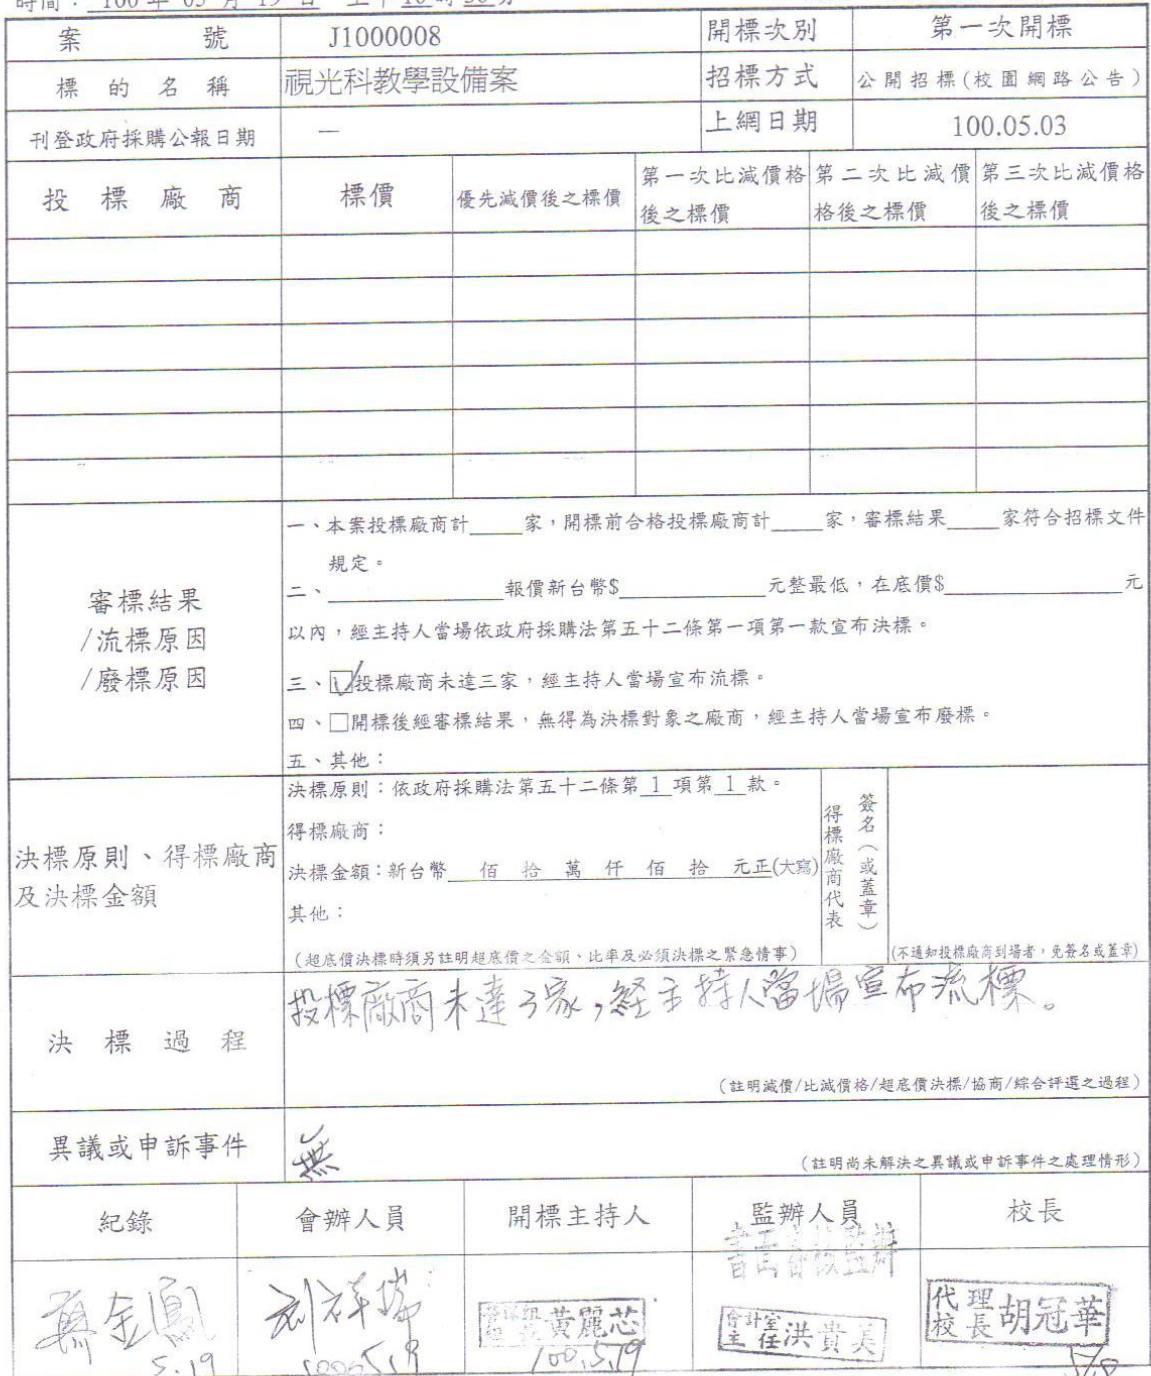 時間：100 年 05 月 19 日 上午10時30分
案號 J1000008 開標次別 第一次開標
標的名稱 視光科教學設備案 招標方式 公開招標(校園網路公告)
刊登政府採購公報日期 — 上網日期 100.05.03
投標廠商 標價 優先減價後之標價 第一次比減價格後之標價 第二次比減價格後之標價 第三次比減價格後之標價
審標結果
/流標原因
/廢標原因
一、本案投標廠商計_____家，開標前合格投標廠商計_____家，審標結果_____家符合招標文件
規定。
二、________________報價新台幣$______________元整最低，在底價$________________元
以內，經主持人當場依政府採購法第五十二條第一項第一款宣布決標。
三、☑投標廠商未達三家，經主持人當場宣布流標。
四、□開標後經審標結果，無得為決標對象之廠商，經主持人當場宣布廢標。
五、其他：
決標原則、得標廠商
及決標金額
決標原則：依政府採購法第五十二條第 1 項第 1 款。
得標廠商：
決標金額：新台幣 佰 拾 萬 仟 佰 拾 元正(大寫)
其他：
(超底價決標時須另註明超底價之金額、比率及必須決標之緊急情事)
得標廠商代表
簽名（或蓋章）
(不通知投標廠商到場者，免簽名或蓋章)
決標過程
投標廠商未達3家，經主持人當場宣布流標。
(註明減價/比減價格/超底價決標/協商/綜合評選之過程)
異議或申訴事件
無
(註明尚未解決之異議或申訴事件之處理情形)
紀錄 會辦人員 開標主持人 監辦人員 校長
書面審核監辦
金鳳
5.19
黃麗芯
100.5.19
會計室主任 洪貴美
代理校長 胡冠華